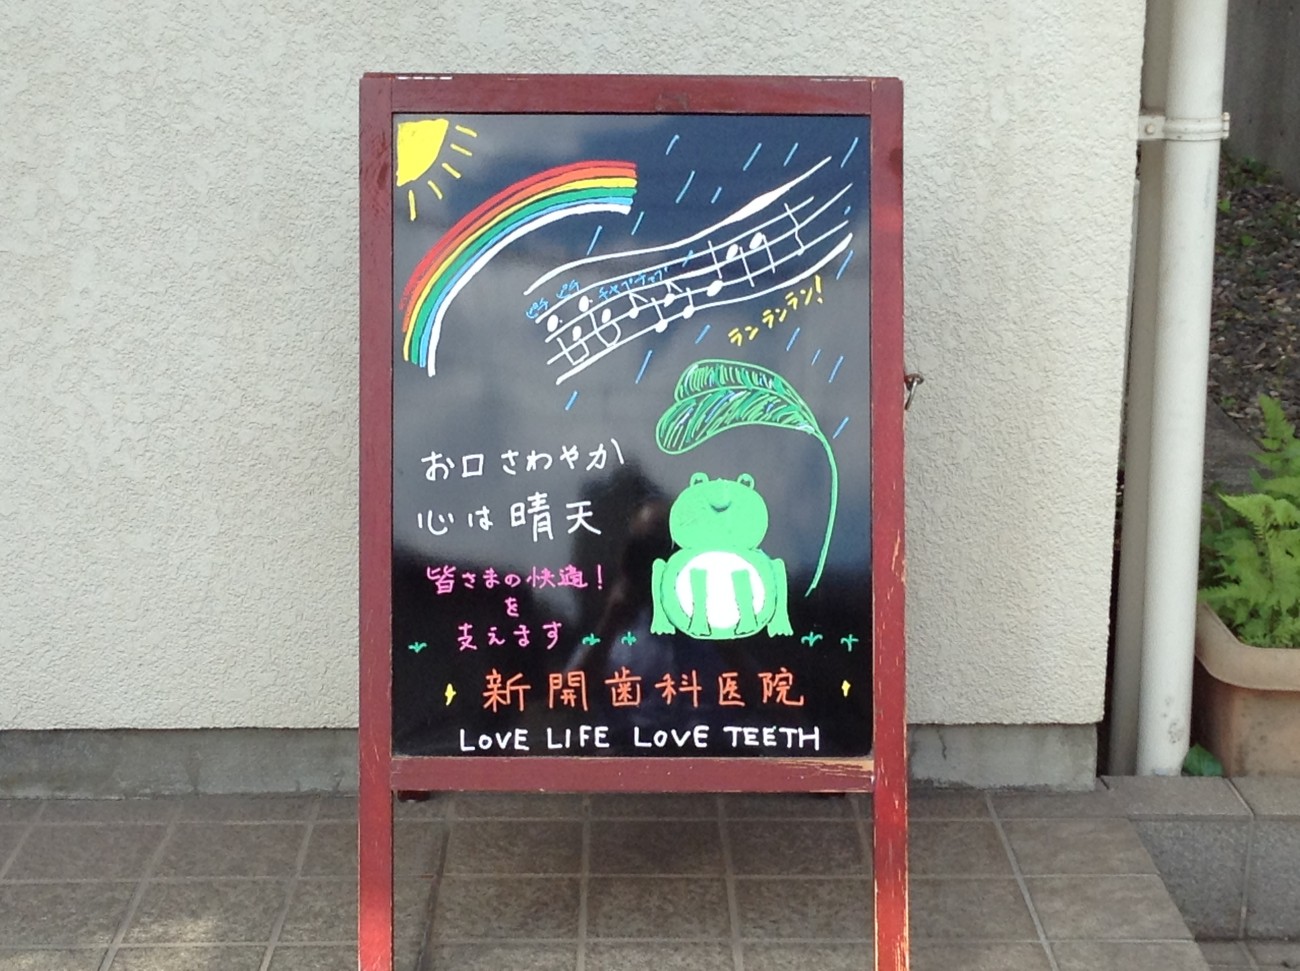 ピチ ピチ チャプ チャプ
ラン ラン ラン!
お口 さわやか
心は 晴天
皆さまの快適!
を
支えます
新開歯科医院
LOVE LIFE LOVE TEETH